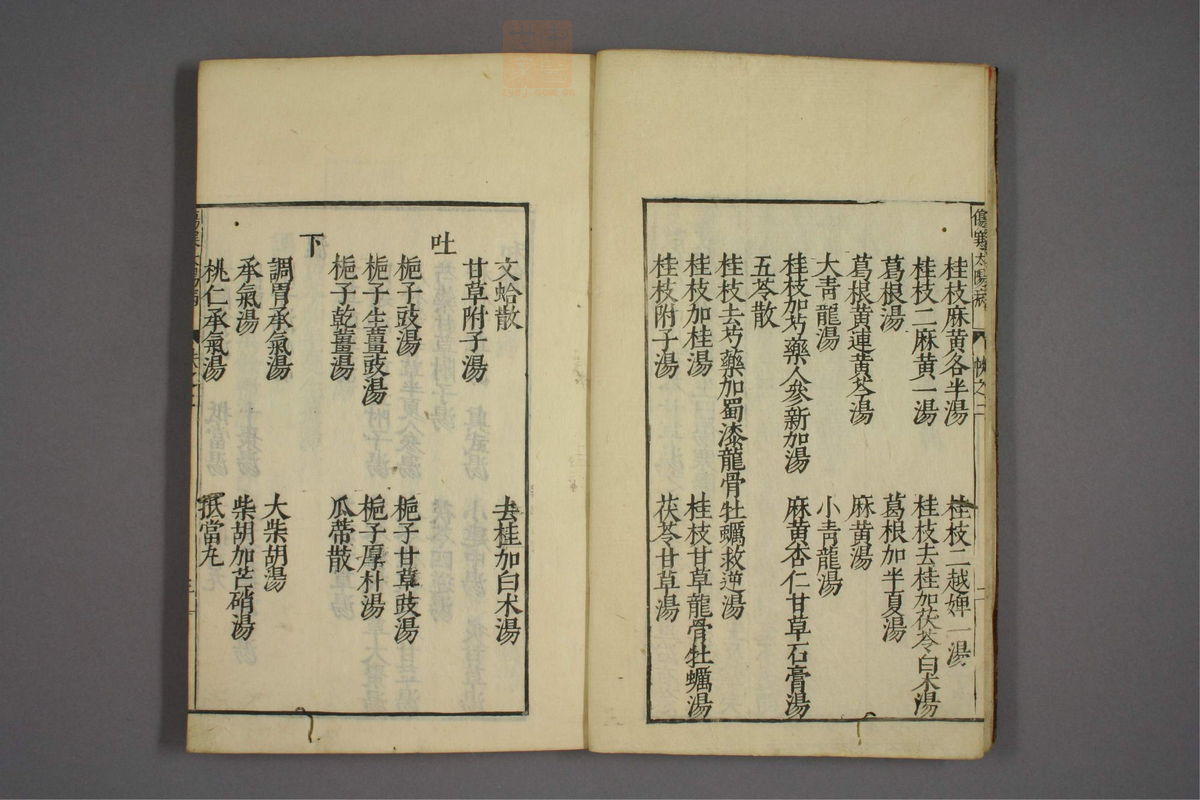 傷寒太陽病
帙之一
二
桂枝麻黃各半湯 桂枝二越婢一湯
桂枝二麻黃一湯 桂枝去桂加茯苓白朮湯
葛根湯 葛根加半夏湯
葛根黃連黃芩湯 麻黃湯
大靑龍湯 小靑龍湯
桂枝加芍藥人參新加湯 麻黃杏仁甘草石膏湯
五苓散
桂枝去芍藥加蜀漆龍骨牡蠣救逆湯
桂枝加桂湯 桂枝甘草龍骨牡蠣湯
桂枝附子湯 茯苓甘草湯
文蛤散 去桂加白朮湯
甘草附子湯
吐
梔子豉湯 梔子甘草豉湯
梔子生薑豉湯 梔子厚朴湯
梔子乾薑湯 瓜蔕散
下
調胃承氣湯 大柴胡湯
承氣湯 柴胡加芒硝湯
桃仁承氣湯 抵當丸